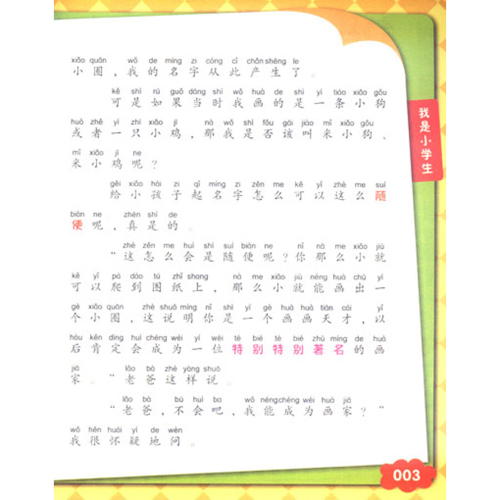 xiǎo quān wǒ de míng zi cóng cǐ chǎn shēng le
小圈，我的名字从此产生了。
kě shì rú guǒ dāng shí wǒ huà de shì yì tiáo xiǎo gǒu
可是如果当时我画的是一条小狗
huò zhě yì zhī xiǎo jī nà wǒ shì fǒu gāi jiào mǐ xiǎo gǒu
或者一只小鸡，那我是否该叫米小狗、
mǐ xiǎo jī ne
米小鸡呢？
gěi xiǎo hái zi qǐ míng zi zěn me kě yǐ zhè me suí
给小孩子起名字怎么可以这么随
biàn ne zhēn shì de
便呢，真是的。
zhè zěn me huì shì suí biàn ne nǐ nà me xiǎo jiù
“这怎么会是随便呢？你那么小就
kě yǐ pá dào tú zhǐ shang nà me xiǎo jiù néng huà chū yí
可以爬到图纸上，那么小就能画出一
gè xiǎo quān zhè shuō míng nǐ shì yí gè huà huà tiān cái yǐ
个小圈，这说明你是一个画画天才，以
hòu kěn dìng huì chéng wéi yí wèi tè bié tè bié zhù míng de huà
后肯定会成为一位特别特别著名的画
jiā lǎo bà zhè yàng shuō
家。”老爸这样说。
lǎo bà bú huì ba wǒ néng chéng wéi huà jiā
“老爸，不会吧，我能成为画家？”
wǒ hěn huái yí de wèn
我很怀疑地问。
我是小学生
003